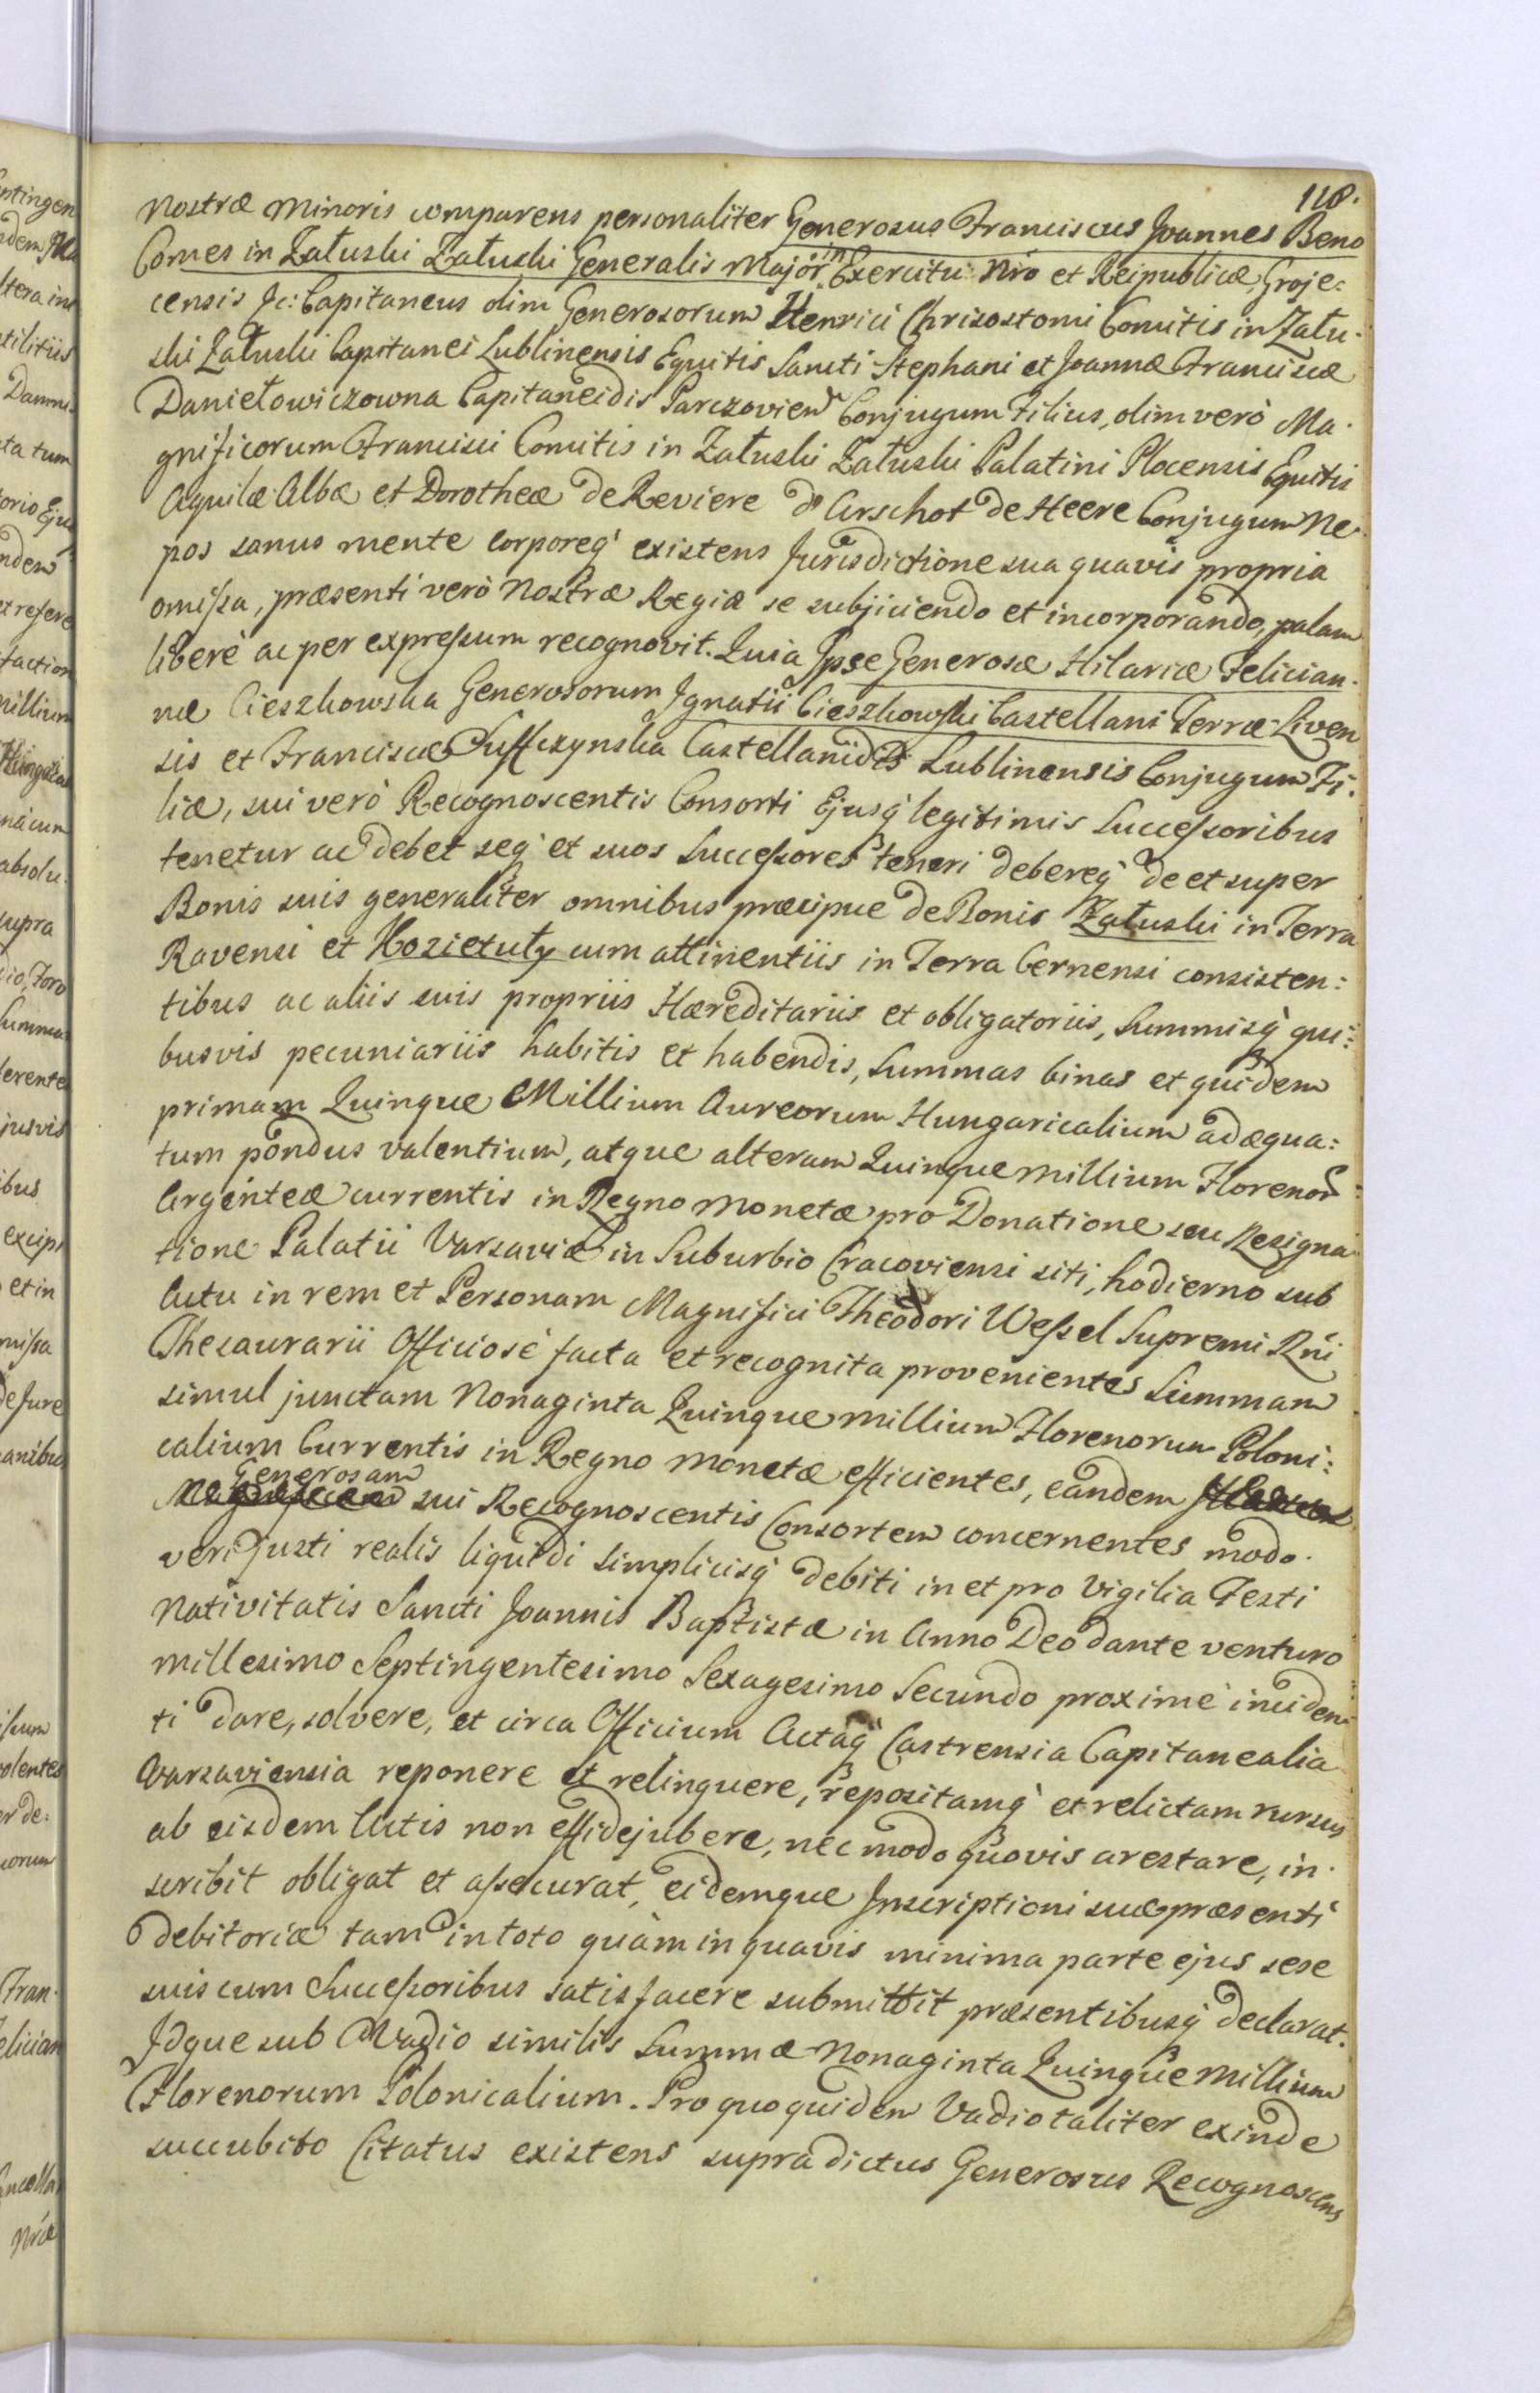 118.
Nostræ Minoris comparens personaliter Generosus Franciscus Joannes Beno
Comes in Załuski Załuski Generalis Major in Exercitu Nro et Reipublicæ, Groje=
censis &c: Capitaneus olim Generosorum Henrici Chrisostomi Comitis in Zału-
ski Załuski Capitanei Lublinensis Equitis Sancti Stephani et Joannæ Franciscæ
Daniełowiczowna Capitaneidis Parczovien Conjugum Filius, olim verò Ma-
gnificorum Francisci Comitis in Załuski Załuski Palatini Plocensis Equitis
Aquilæ Albæ et Dorotheæ de Reviere d'Arschot de Heere Conjugum Ne-
pos sanus mente corporeq́ existens Jurisdictione sua quavis propria
omissa, præsenti verò Nostræ Regiæ se subjiciendo et incorporando, palam
liberè ac per expressum recognovit. Quia Ipse Generosæ Hilariæ Felician-
næ Cieszkowska Generosorum Ignatii Cieszkowski Castellani Terræ Liven
sis et Franciscæ Suffczynska Castellanidis Lublinensis Conjugum Fi-
liæ, sui verò Recognoscentis Consorti Ejusq́ legitimis Successoribus
tenetur ac debet seq́ et suos Successores teneri debereq́ de et super
Bonis suis generaliter omnibus præcipue de Bonis Załuski in Terra
Ravensi et Kozietuły cum attinentiis in Terra Cernensi consisten=
tibus ac aliis suis propriis Hæreditariis et obligatoriis, Summisq́ qui=
busvis pecuniariis habitis et habendis, Summas binas et quidem
primam Quinque Millium Aureorum Hungaricalium adæqua=
tum pondus valentium, atque alteram Quinque Millium Florenor
Argenteæ currentis in Regno Monetæ pro Donatione seu Resigna-
tione Palatii Varsaviæ in Suburbio Cracoviensi siti, hodierno sub
Actu in rem et Personam Magnifici Theodori Wessel Supremi Rni
Thesaurarii Officiosè facta et recognita provenientes Summam
simul junctam Nonaginta Quinque Millium Florenorum Poloni=
calium Currentis in Regno Monetæ efficientes, eandem
Generosam sui Recognoscentis Consortem concernentes modo
veri justi realis liquidi simplicisq́ debiti in et pro Vigilia Festi
Nativitatis Sancti Joannis Baptistæ in Anno Deo dante venturo
Millesimo Septingentesimo Sexagesimo Secundo proximè inciden-
ti dare, solvere, et circa Officium Actaq́ Castrensia Capitanealia
Varsaviensia reponere et relinquere, repositamq́ et relictam rursus
ab eisdem Actis non effidejubere, nec modo quovis arestare, in-
scribit obligat et assecurat, eidemque Inscriptioni suæ præsenti
debitoriæ tam in toto quàm in quavis minima parte ejus sese
suis cum Successoribus satisfacere submittit præsentibusq́ declarat.
Idque sub Vadio similis Summæ Nonaginta Quinque Millium
Florenorum Polonicalium. Pro quo quidem Vadio taliter exinde
succubito Citatus existens supradictus Generosus Recognoscens